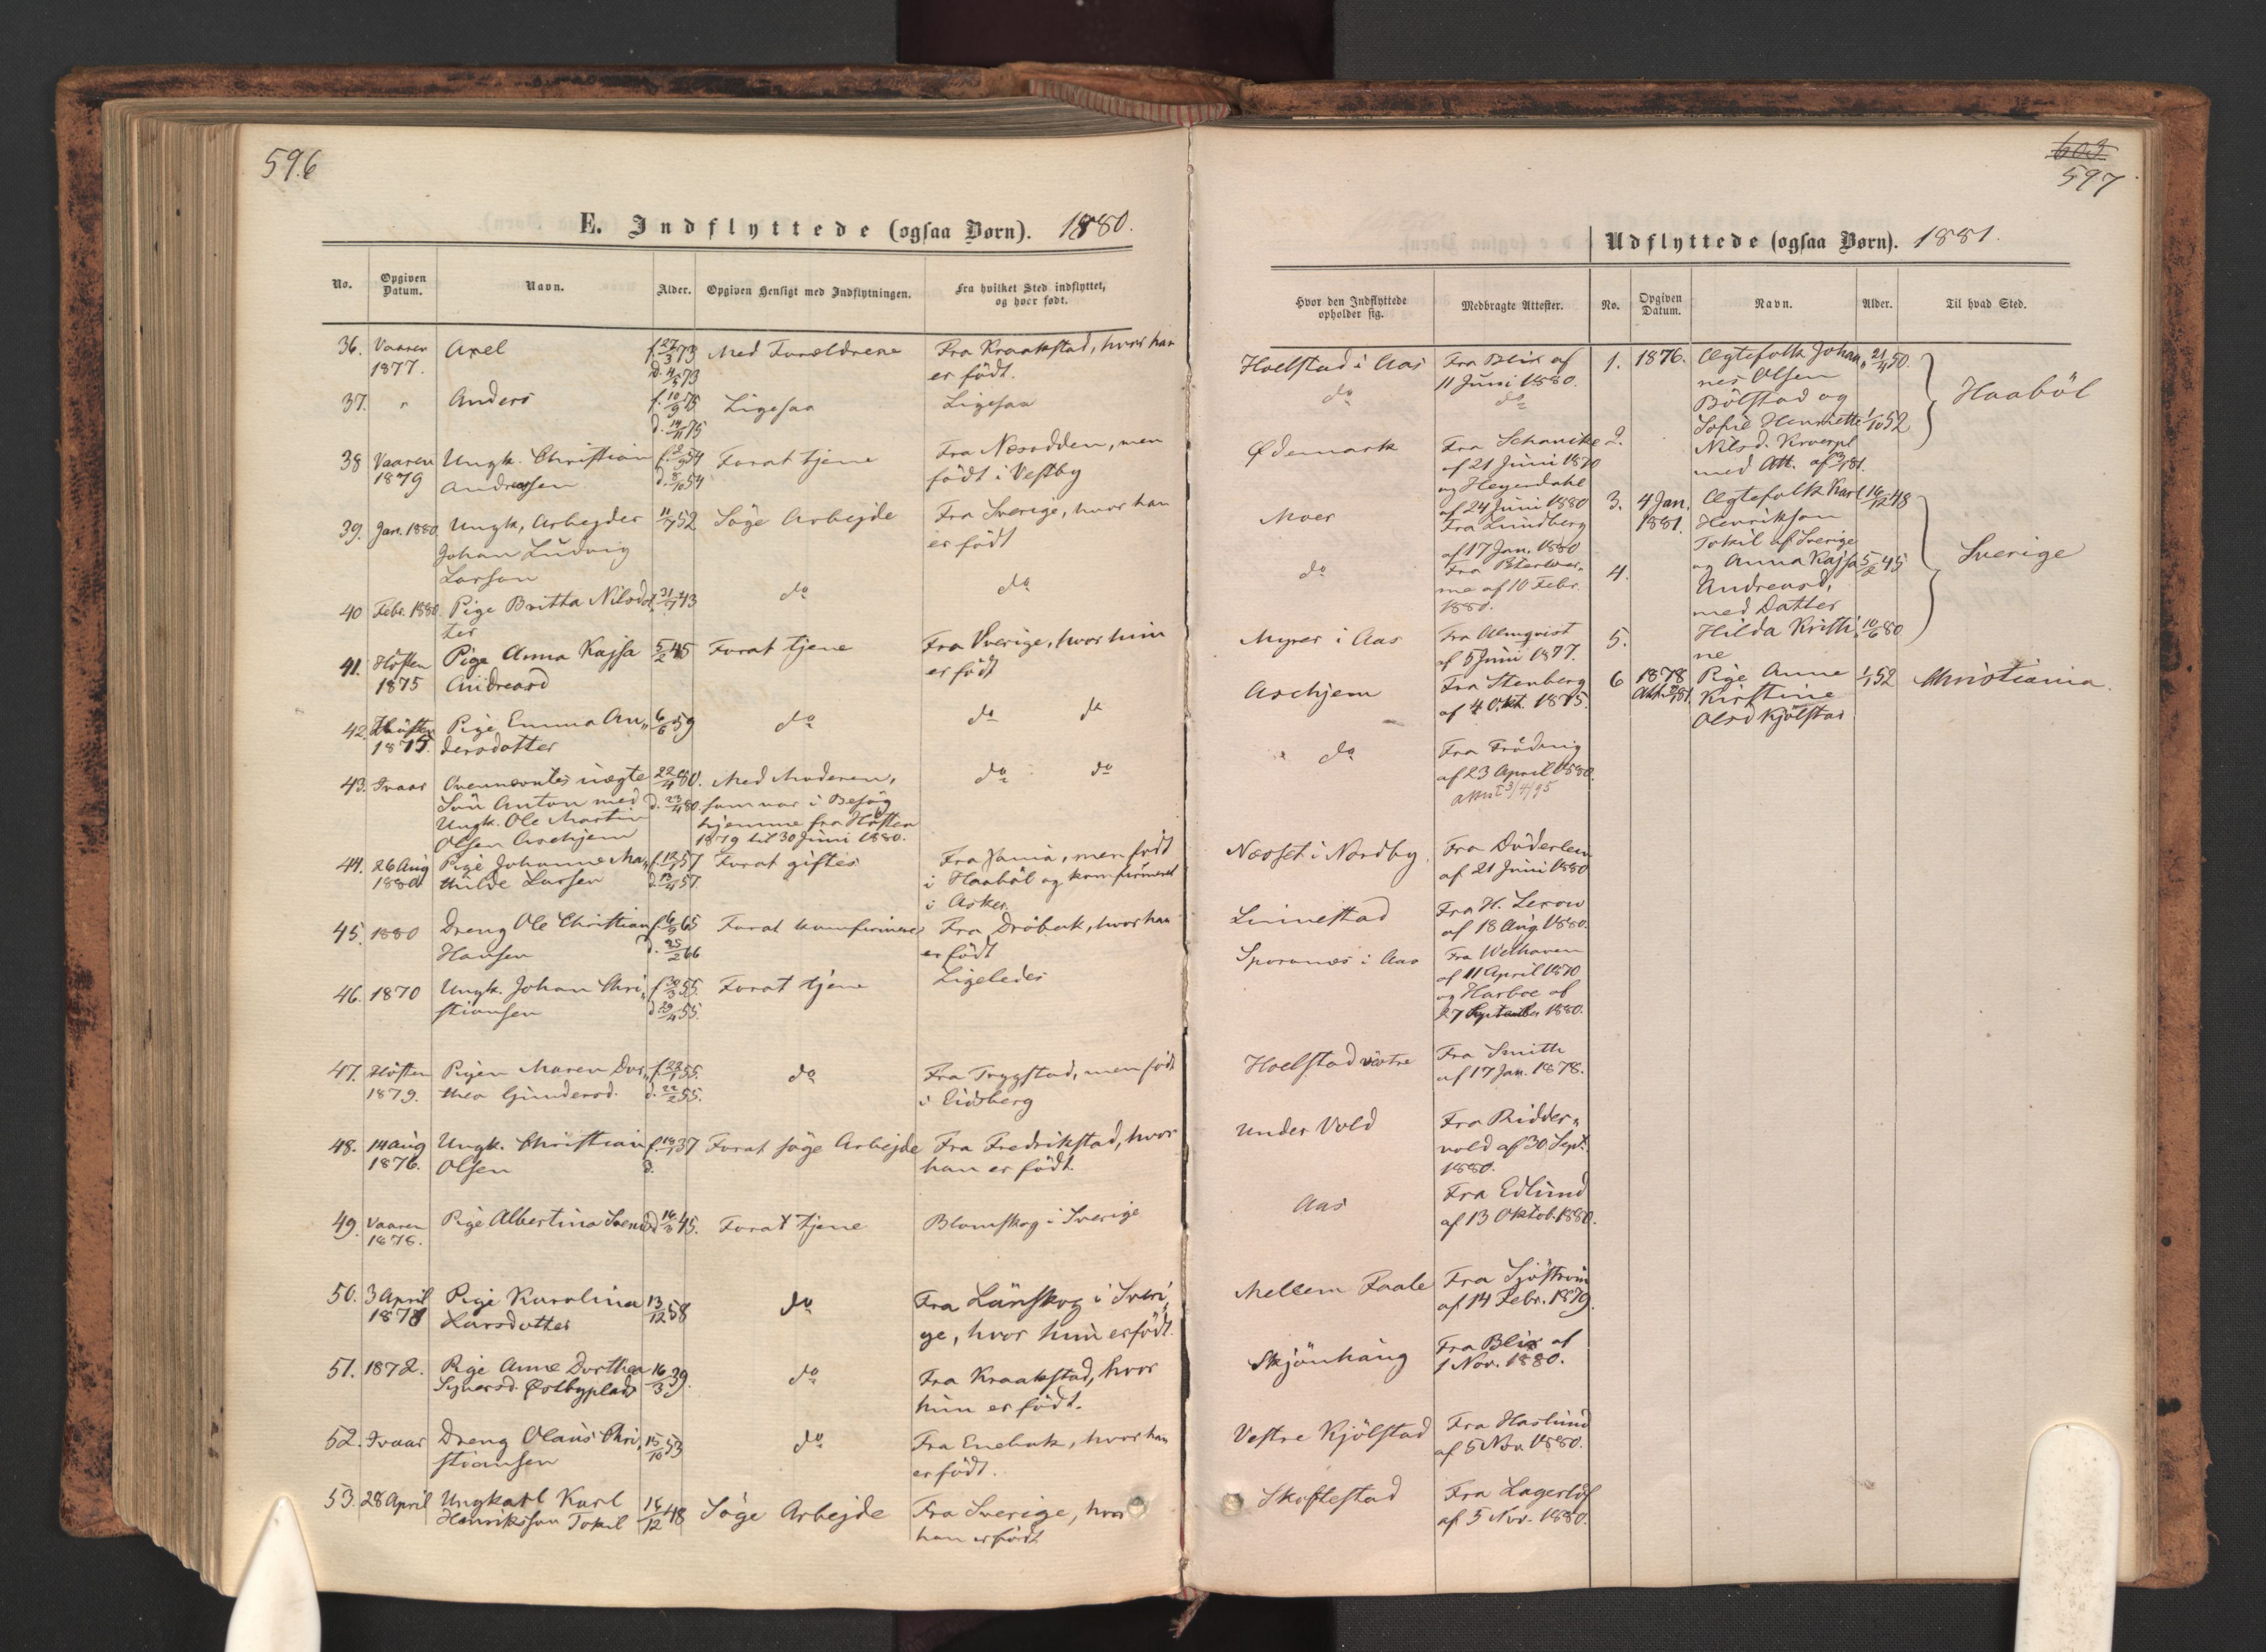 596
E. Indflyttede (ogsaa Børn). 1880.
No. Opgiven Datum. Navn. Alder. Opgiven Hensigt med Indflytningen. Fra hvilket Sted indflyttet, og hvor født.
36. Vaaren 1877. Axel f. 27/3 73 d. 4/5 73 Med Forældrene Fra Kraakstad, hvor han er født.
37. " Anders f. 10/9 75 d. 14/11 75 Ligesaa Ligesaa
38 Vaaren 1879 Ungk. Christian Andersen 54 d. 8/10 54 For at tjene Fra Nesodden, men født i Vestby
39. Jan. 1880. Ungk, Arbejder Johan Ludvig Larson 11/7 52 Søge Arbejde Fra Sverige, hvor han er født
40 Febr. 1880. Pige Britta Nilsdotter 31/7 43 do do
41. Høsten 1875 Pige Anna Kajsa Andreasd 5/2 45 For at tjene Fra Sverige, hvor hun er født
42. Høsten 1875. Pige Emma Andersdotter 6/6 59 do do do
43. Ivaar Ovennævntes uægte Søn Anton med Ungk. Ole Martin Olsen Aschjem 22/4 80. d. 23/4 80. Med Moderen, som var i Besøg hjemme fra Høsten 1879 til 30 Juni 1880. do do
44. 26 Aug 1880 Pige Johanne Mathilde Larsen f. 12/1 57 d. 13/4 57. For at giftes Fra Xania, men født i Haabøl og konfirmeret i Asker.
45. 1880 Dreng Ole Christian Hansen f. 6/9 65 d. 25/2 66 For at konfirmeres Fra Drøbak, hvor han er født
46. 1870 Ungk. Johan Christiansen f. 30/3 55. d. 29/4 55. For at tjene Ligeledes
47. Høsten 1879. Pigen Maren Dorthea Gundersd. f. 22/1 55. d. 22/2 55. do Fra Trygstad, men født i Eidsberg
48. 14 Aug 1876. Ungk. Christian Olsen 37 d. For at søge Arbejde Fra Fredrikstad, hvor han er født.
49. Vaaren 1878. Pige Albertina Svensd 16/3 45. For at tjene Blomskog i Sverige
50. 3 April 1878 Pige Karolina Larsdotter 13/12 58 do Fra Länskog i Sverige, hvor hun er født.
51. 1872. Pige Anne Dorthea Syversd. Østbyplads 16/3 39. do Fra Kraakstad, hvor hun er født.
52. Ivaar Dreng Olaus Christiansen 15/10 53 do Fra Enebak, hvor han er født.
53. 28 April Ungkarl Karl Henriksson Tokil 16/12 48 Søge Arbejde Fra Sverige, hvor han er født
603
597
Udflyttede (ogsaa Børn). 1881.
Hvor den Indflyttede opholder sig. Medbragte Attester. No. Opgiven Datum. Navn. Alder. Til hvad Sted.
Holstad i Aas Fra Blix af 11 Juni 1880.
do do
Ødemark Fra Schanike af 21 Juni 1870 og Heyerdahl af 24 Juni 1880
Moer Fra Lundberg af 17 Jan. 1880
do me af 10 Febr. 1880.
Myrer i Aas Fra Almqvist af 5 Juni 1877.
Aschjem Fra Stenberg af 4 Okt. 1875.
do Fra Frøding af 23 April 1880.
Næsset i Nordby. Fra Døderlein af 21 Juni 1880
Linnestad Fra H. Lexow af 18 Aug. 1880.
Sporonæs i Aas Fra Welhaven af 11 April 1870 og Harboe af 27 September 1880.
Holstad vestre Fra Smith af 17 Jan. 1878.
Under Vold Fra Riddervold af 30 Sept. 1880.
Aas Fra Edlund af 13 Oktob. 1880.
Mellem Faale Fra Sjöström af 14 Febr. 1879.
Skjønhaug Fra Blix af 1 Nov. 1880.
Vestre Kjølstad Fra Haslund af 5 Nov. 1880.
Skoftestad Fra Lagerlöf af 5 Nov. 1880.
1. 1876. Ægtefolk Johannes Olsen Bølstad og 21/4 50. Haabøl
2. Sofie Henriette Nilsd. med Att. af 1/10 52
3. 4 Jan. 1881. Ægtefolk Karl Henrikson Tokil af Sverige 16/12 48 Sverige
4. og Anna Kajsa Andreasd, 5/2 45
5. med Datter Hilda Kristine 10/6 80
6 1878 Pige Anne Kirstine Olsd Kjølstad 1/1 52 Christiania.